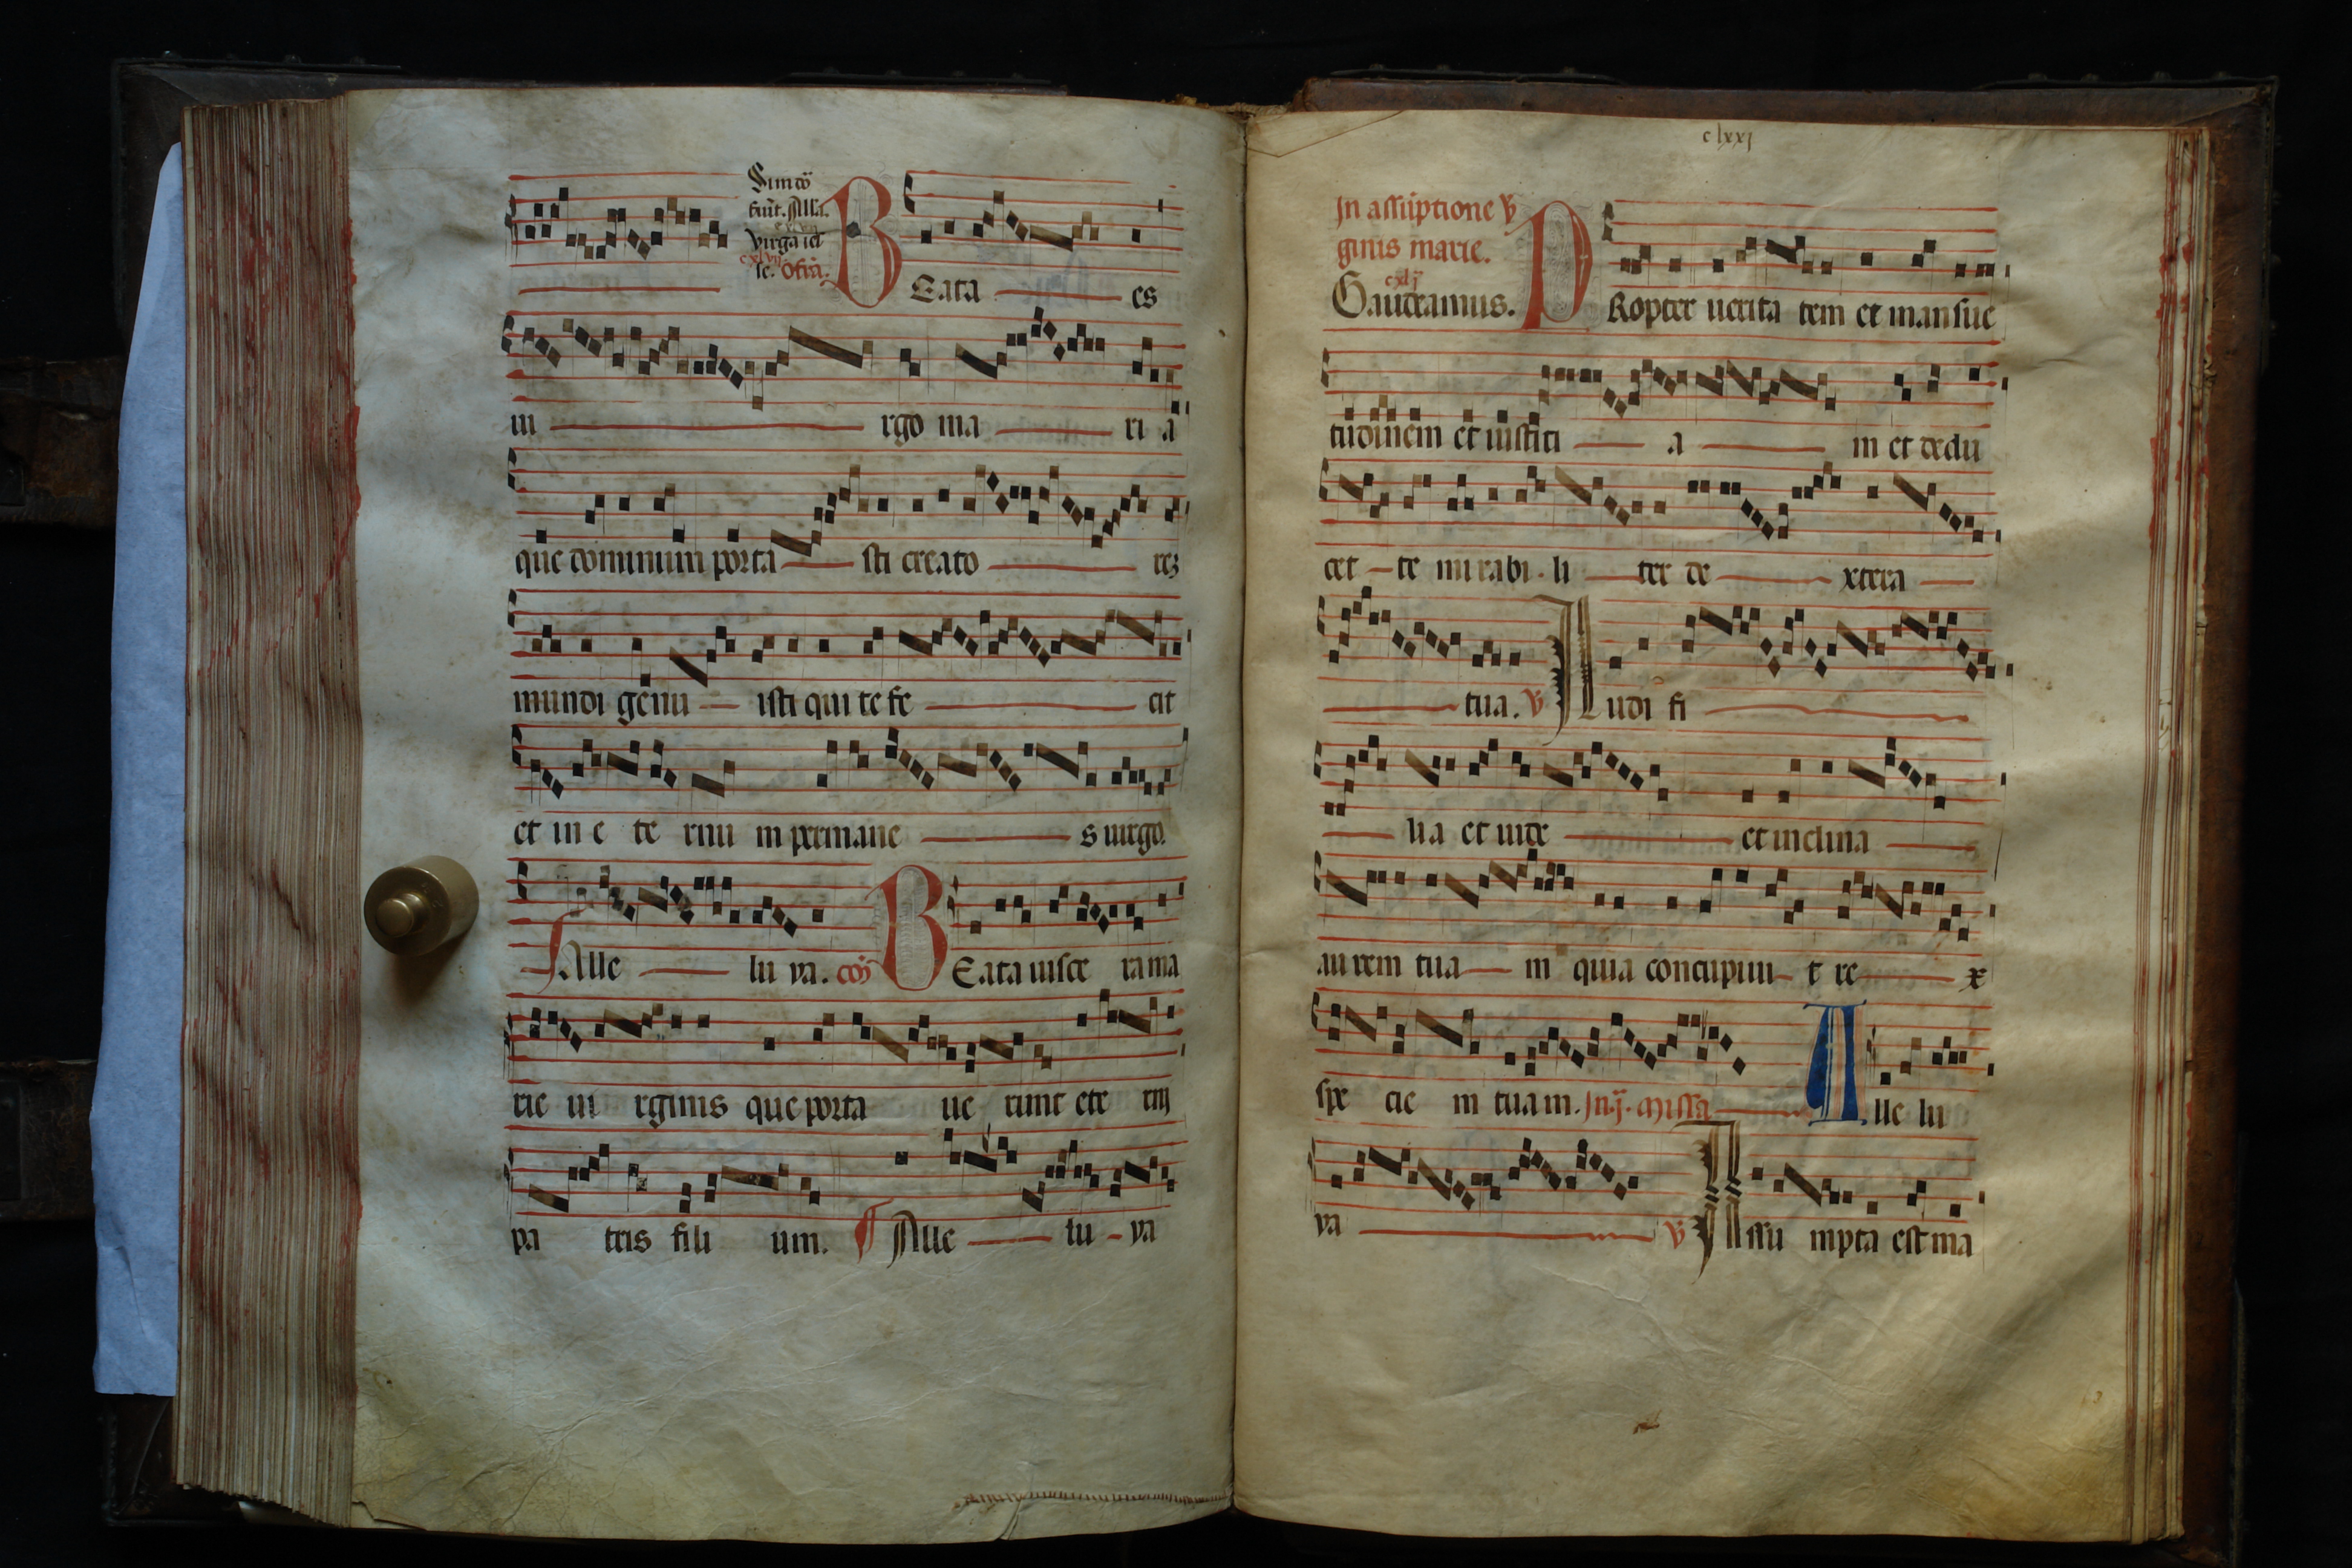 Sim cō
fiūt. Alla.
virga ies
cxlvij
se. Ofrā.
BEata es
ui rgo ma ri a
que dominum porta sti creato rez
mundi genu isti qui te fe cit
et in e te rnu m permane s uirgo
Alle lu ya. cōi BEata uisce ra ma
rie ui rginis que porta ue runt ete rnj
pa tris fili um. Alle lu ya
clxxj
Jn assūptione v
ginis marie.
cxlj
Gaudeamus. PRopter uerita tem et mansue
tudinem et iustiti a m et dedu
cet te mirabi li ter de xtera
tua. v Audi fi
lia et uide et inclina
aurem tua m quia concupiui t re x
spe cie m tuam. Jn .ij. missa Alle lu
ya v Assu mpta est ma